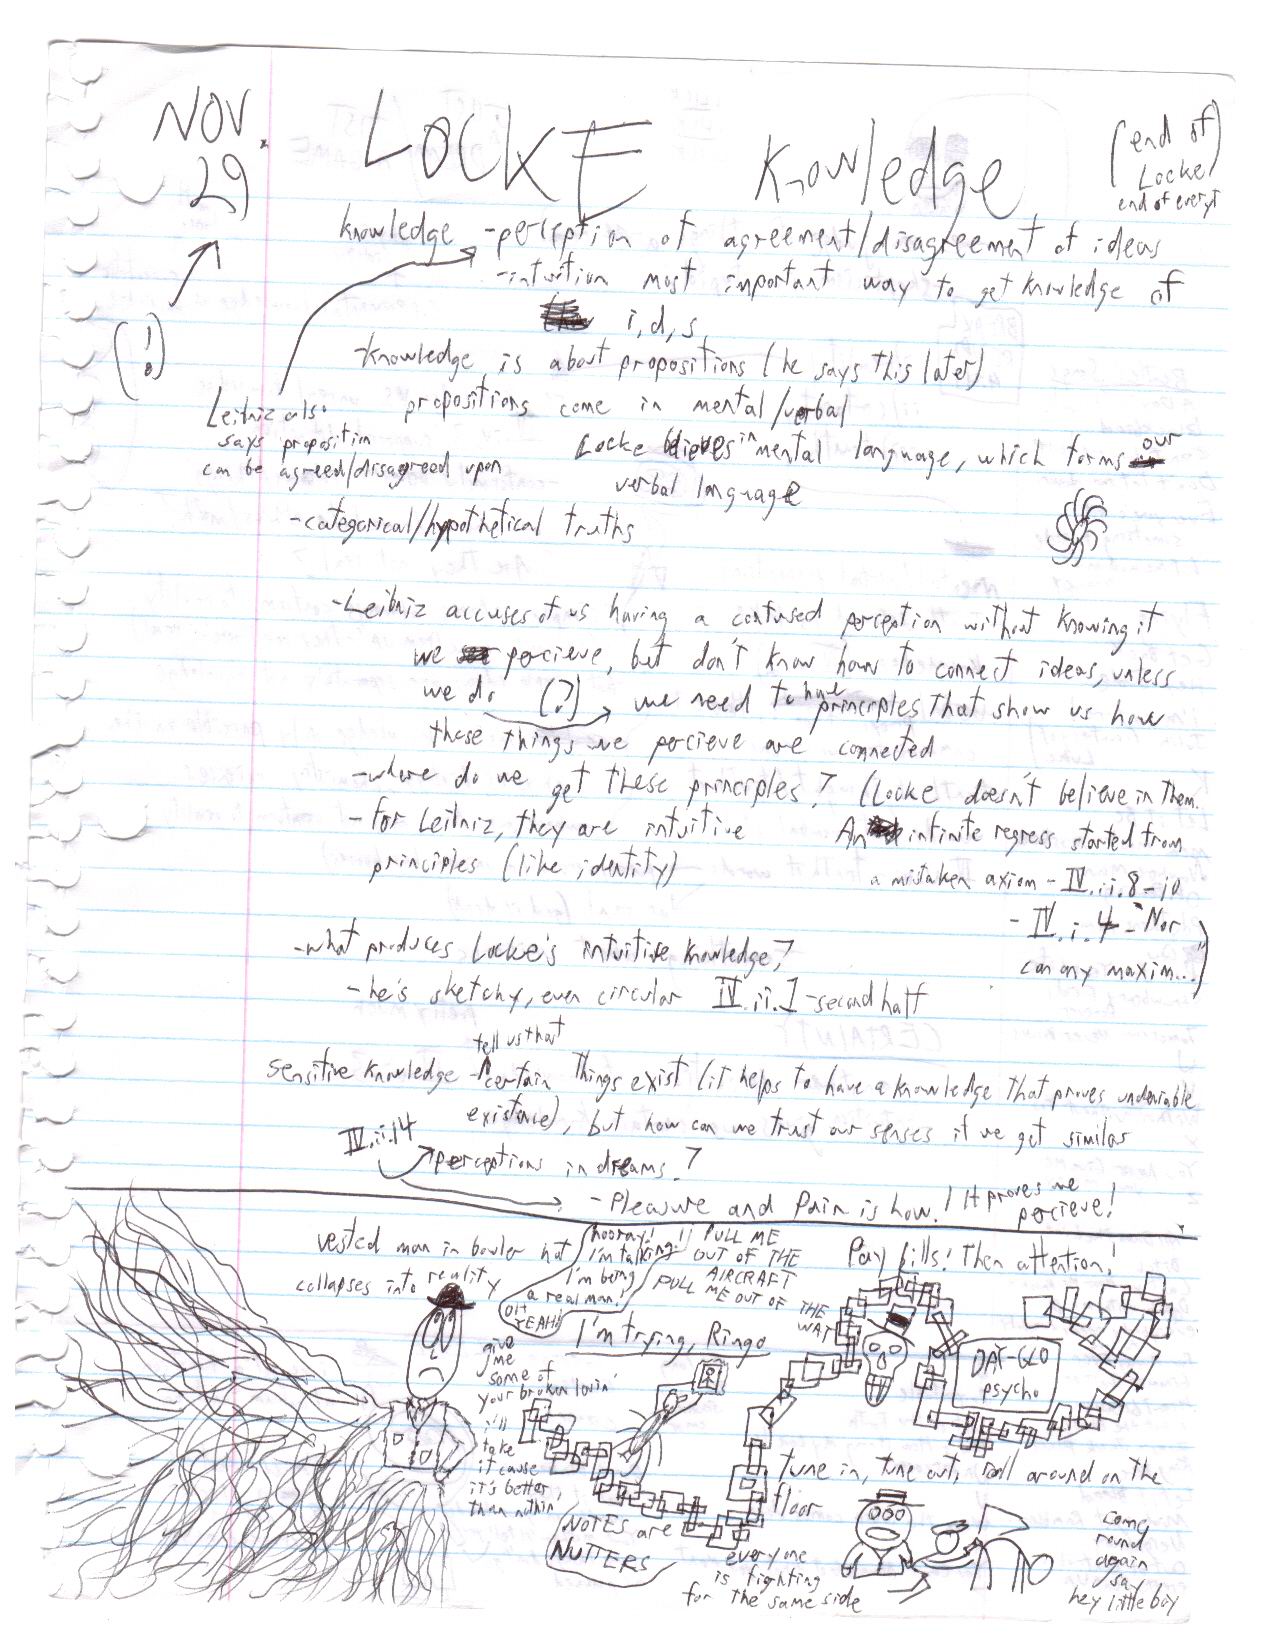 NOV. 29
LOCKE Knowledge
(end of Locke
end of everyt)
knowledge - perception of agreement/disagreement of ideas
- intuition most important way to get knowledge of
i, d, s,
(!)
- knowledge is about propositions (he says this later)
propositions come in mental/verbal
Leibniz also
says proposition
can be agreed/disagreed upon
Locke blieves in mental language, which forms our
verbal language
- categorical/hypothetical truths
- Leibniz accuses of us having a confused perception without knowing it
we percieve, but don't know how to connect ideas, unless
we do (?) we need to have principles that show us how
those things we percieve are connected
- where do we get these principles? (Locke doesn't believe in them.
- for Leibniz, they are intuitive
principles (like identity)
An infinite regress started from
a mistaken axiom - IV.ii.8-10
- IV.i.4 - Nor
can any maxim...)
- what produces Locke's intuitive knowledge?
- he's sketchy, even circular IV.ii.1 - second half
tell us that
sensitive knowledge - certain things exist (it helps to have a knowledge that proves undeniable
existence), but how can we trust our senses if we get similar
IV.ii.14
perceptions in dreams?
- Pleasure and Pain is how! It proves we
percieve!
vested man in bowler hat
collapses into reality
hooray!
I'm talking!
I'm being
a real man!
OH YEAH!
!! PULL ME
OUT OF THE
AIRCRAFT
PULL ME OUT OF THE
WAT
I'm trying, Ringo
Pay bills! Then attention!
give
me
some of
your broken lovin'
i'll
take
it cause
it's better
than nothin'
DAY-GLO
psycho
tune in, tune out, roll around on the
floor
NOTES are
NUTTERS
everyone
is fighting
for the same side
come
round
again
say
hey little boy